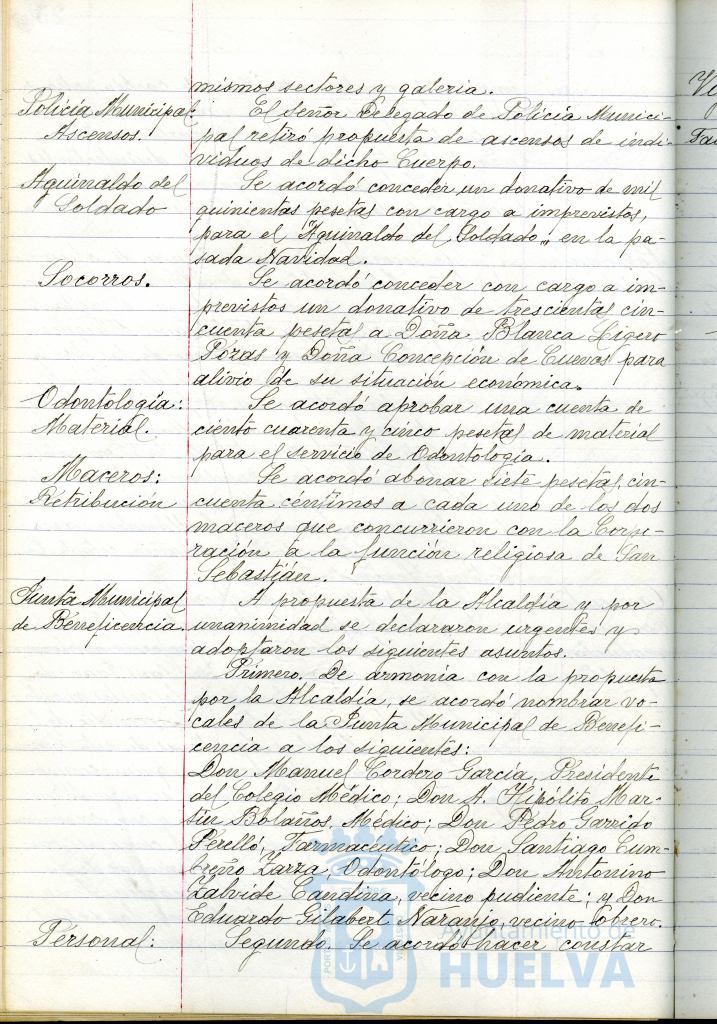 mismos sectores y galeria.
Policía Municipal: El Señor Delegado de Policía Munici-
Ascensos. pal retiró propuesta de ascensos de indi-
viduos de dicho Cuerpo.
Aguinaldo del Se acordó conceder un donativo de mil
Soldado quinientas pesetas con cargo a imprevistos,
para el "Aguinaldo del Soldado" en la pa-
sada Navidad.
Socorros. Se acordó conceder con cargo a im-
previstos un donativo de trescientas cin-
cuenta pesetas a Doña Blanca Ligero
Pozas y Doña Concepción de Cuevas para
alivio de su situación económica.
Odontología: Se acordó aprobar una cuenta de
Material. ciento cuarenta y cinco pesetas de material
para el servicio de Odontología.
Maceros: Se acordó abonar siete pesetas cin-
Retribución cuenta céntimos a cada uno de los dos
maceros que concurrieron con la Corpo-
ración a la función religiosa de San
Sebastián.
Junta Municipal A propuesta de la Alcaldía y por
de Beneficencia. unanimidad se declararon urgentes y
adoptaron los siguientes asuntos.
Primero. De armonía con la propuesta
por la Alcaldía, se acordó nombrar vo-
cales de la Junta Municipal de Benefi-
cencia a los siguientes:
Don Manuel Cordero García, Presidente
del Colegio Médico; Don A. Hipólito Mar-
tín Bolaños, Médico; Don Pedro Garrido
Perelló, Farmacéutico; Don Santiago Cum-
breño Zarza, Odontólogo; Don Antonino
Zalvide Candina, vecino pudiente; y Don
Eduardo Gilabert Naranjo, vecino obrero.
Personal: Segundo. Se acordó hacer constar
Ayuntamiento de
HUELVA